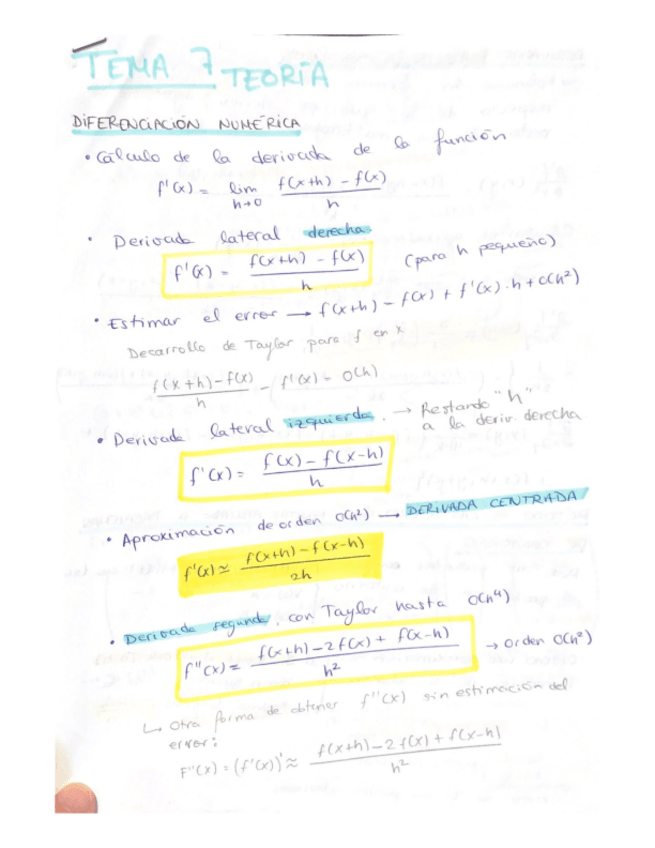 TEMA 7 TEORÍA
DIFERENCIACIÓN NUMÉRICA
• Cálculo de la derivada de la función
f'(x) = lim h→0 f(x+h) - f(x) / h
• Derivada lateral derecha
f'(x) = f(x+h) - f(x) / h (para h pequeño)
• Estimar el error → f(x+h) - f(x) + f'(x)·h + O(h²)
Decarrollo de Taylor para f en x
f(x+h) - f(x) / h - f'(x) - O(h)
• Derivada lateral izquierda. → Restando "h" a la deriv. derecha
f'(x) = f(x) - f(x-h) / h
• Aproximación de orden O(h²) → DERIVADA CENTRADA
f'(x) ≃ f(x+h) - f(x-h) / 2h
• Derivada segunda, con Taylor hasta O(h⁴)
f''(x) = f(x+h) - 2f(x) + f(x-h) / h² → orden O(h²)
↳ Otra forma de obtener f''(x) sin estimación del
error:
F''(x) = (f'(x))' ≈ f(x+h) - 2f(x) + f(x-h) / h²